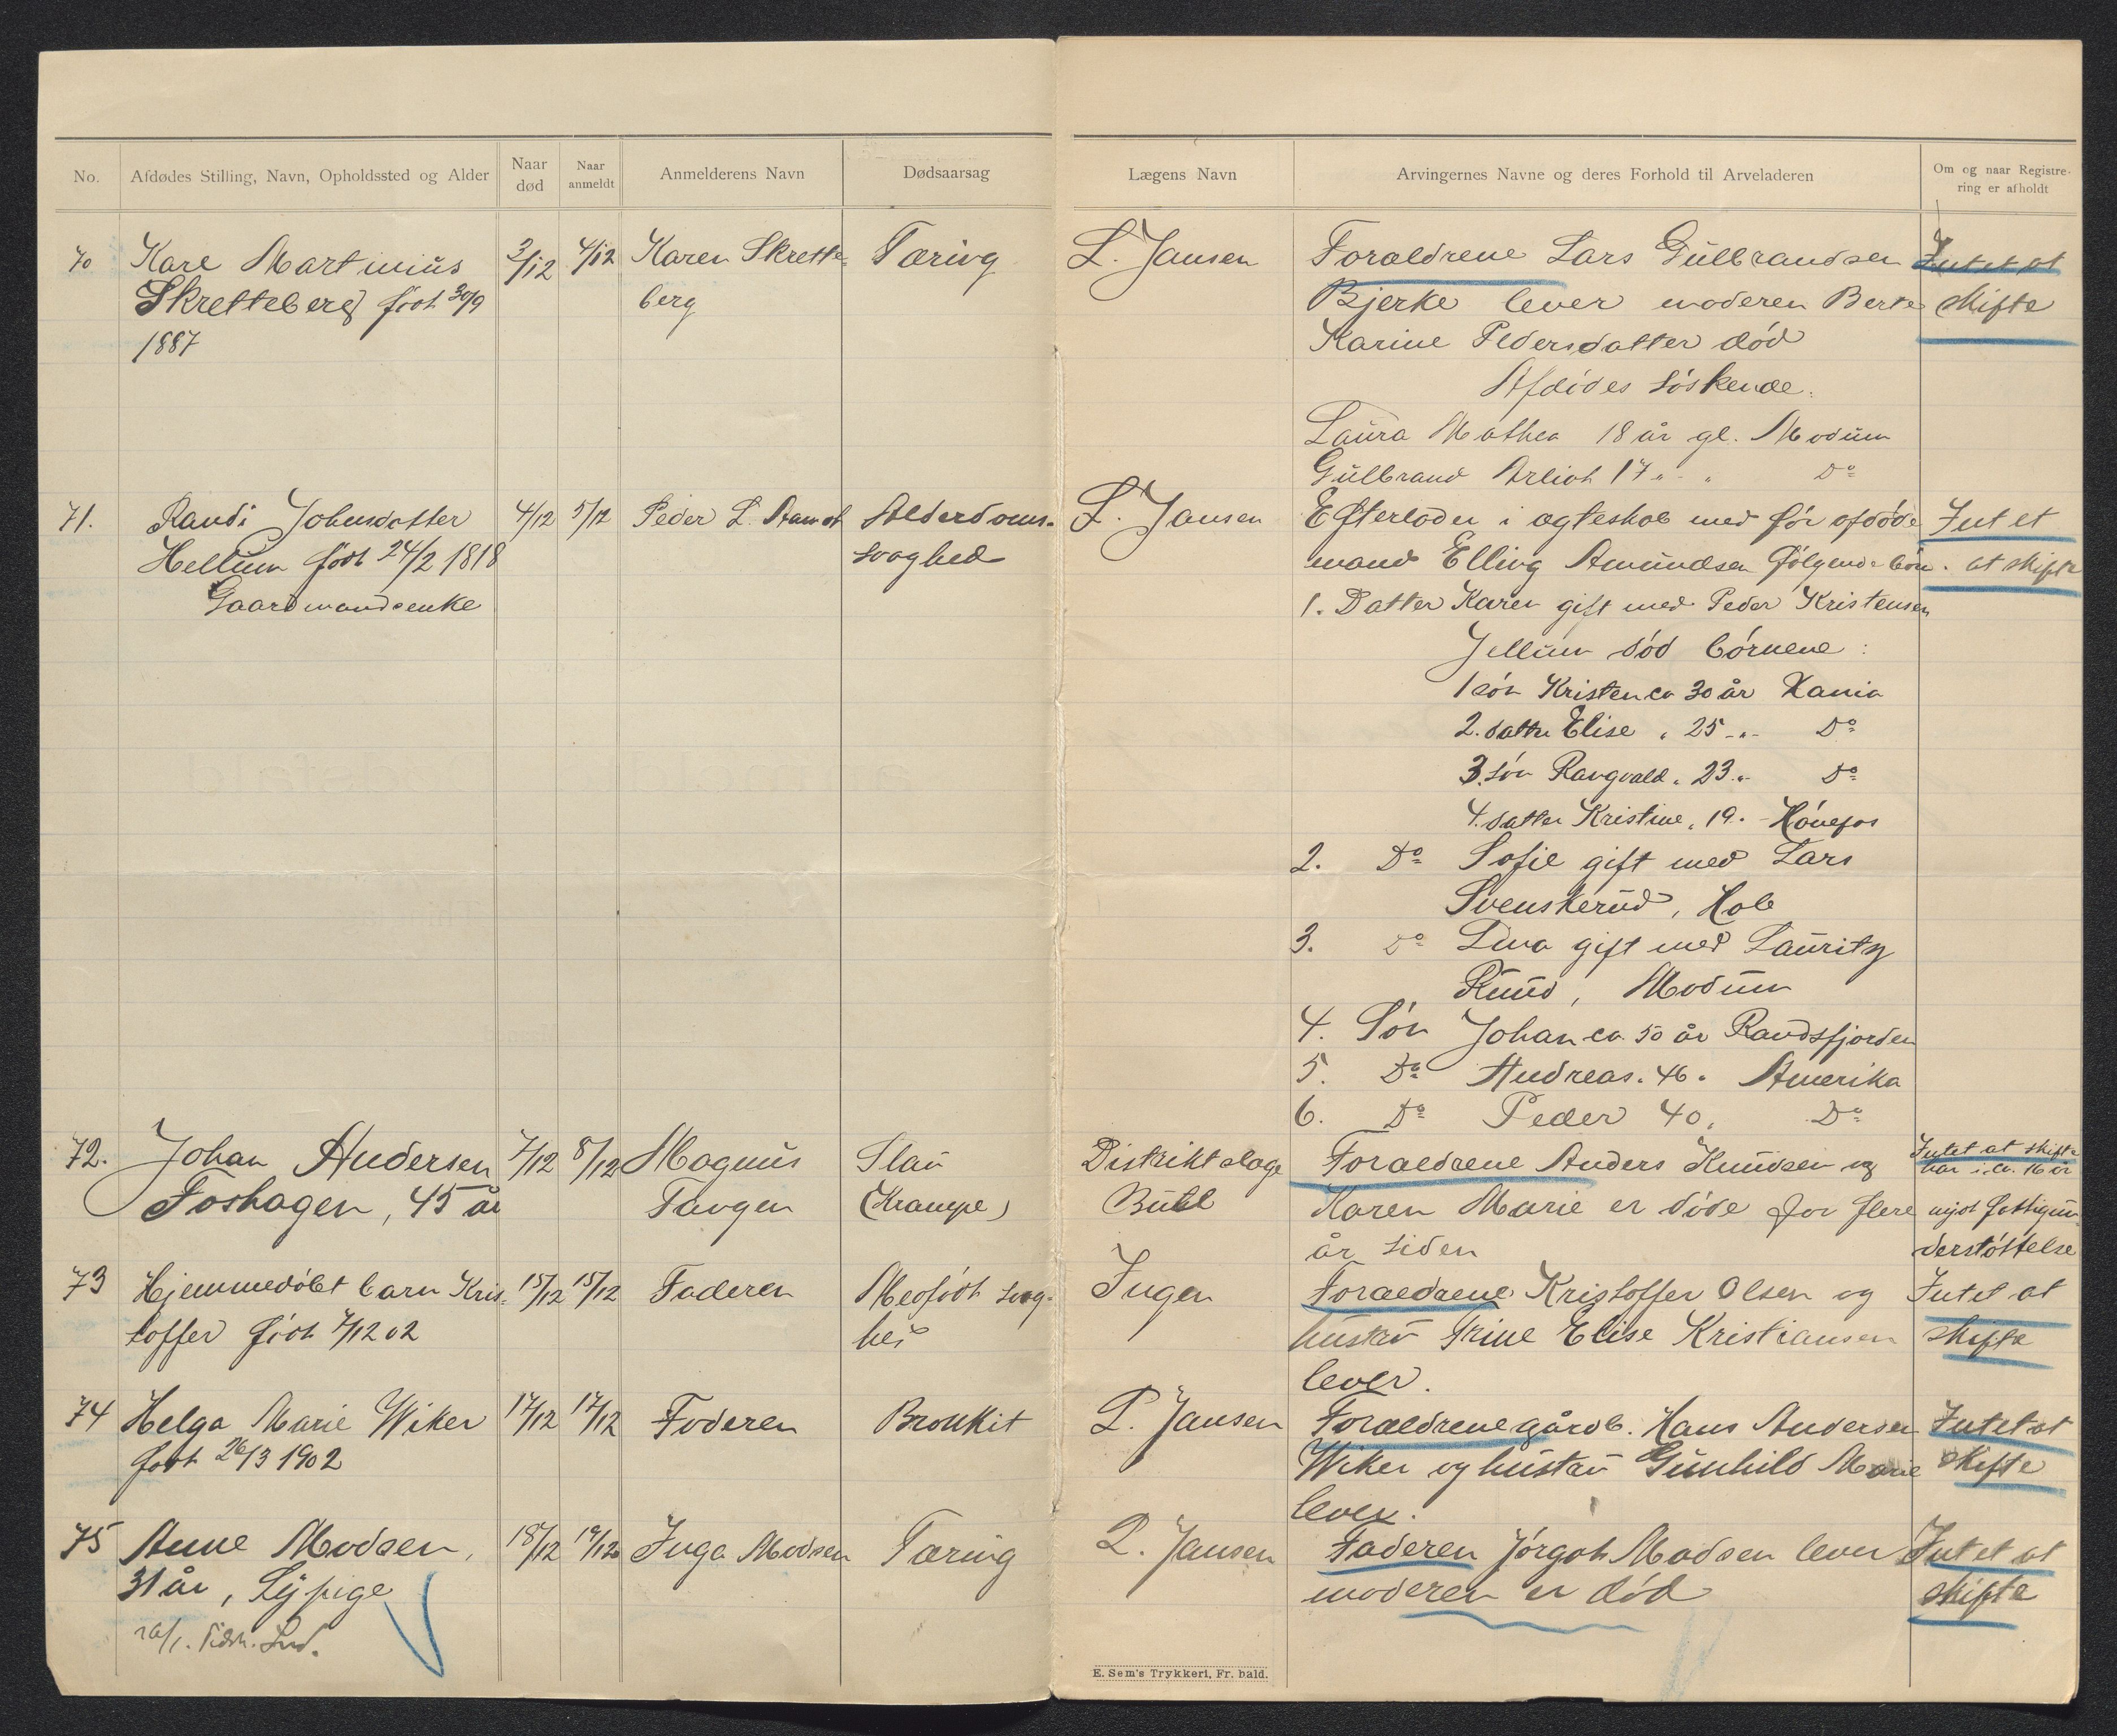 No. Afdødes Stilling, Navn, Opholdssted og Alder Naar død Naar anmeldt Anmelderens Navn Dødsaarsag Lægens Navn Arvingernes Navne og deres Forhold til Arveladeren Om og naar Registrering er afholdt
70 Karl Martinius 3/12 4/12 Karen Skrette- Tæring L. Jansen Forældrene Lars Gulbrandsen Intet at
Skretteberg født 30/9 berg Bjerke lever moderen Berte skifte
1887 Karine Pedersdatter død
Afdødes söskende.
Laura Mathea 18 år gl. Modum
Gulbrand Arliot 17 " " Do
71. Randi Johnsdatter 4/12 5/12 Peder L. Alderdoms- L. Jansen Efterlader i ægteskab med før afdøde Intet
Hellum født 24/2 1818 svaghed mand Elling Amundsen følgende börn. at skifte
Gaardmandsenke 1. Datter Karen gift med Peder Kristensen
Jellum död börnene:
1 sön Kristen ca 30 år Xania
2. datter Elise " 25 - " - Do
3. sön Rangvald " 23 " Do
4. datter Kristine " 19. - Hönefos
2. Do Sofie gift med Lars
Svenskerud, Hole
3. Do Lina gift med Lauritz
Ruud, Modum
4. Sön Johan ca. 50 år Randsfjorden
5. Do Andreas " 46 " Amerika
6. Do Peder 40 " Do
72. Johan Andersen 7/12 8/12 Magnus Slau Distriktslæge Forældrene Anders Knudsen og Intet at skifte
Foshagen, 45 år Tangen (Krampe) Bull Karen Marie er döde for flere har i ca. 16 år
år siden nydt fattigun-
derstöttelse
73 Hjemmedöbt barn Kris- 15/12 15/12 Faderen Medfødt svag- Ingen Forældrene Kristoffer Olsen og Intet at
toffer født 7/12 02 hed hustru Trine Elise Kristiansen skifte
lever.
74 Helga Marie Wiker 17/12 17/12 Faderen Bronkit L. Jansen Forældrene gårdb. Hans Andersen Intet at
født 26/3 1902 Wiker og hustru Gunhild Marie skifte
lever.
75 Anne Madsen, 18/12 19/12 Inga Madsen Tæring L. Jansen Faderen Jörgen Madsen lever Intet at
31 år, Sypige moderen er död skifte
26/1.
E. Sem's Trykkeri, Fr. hald.